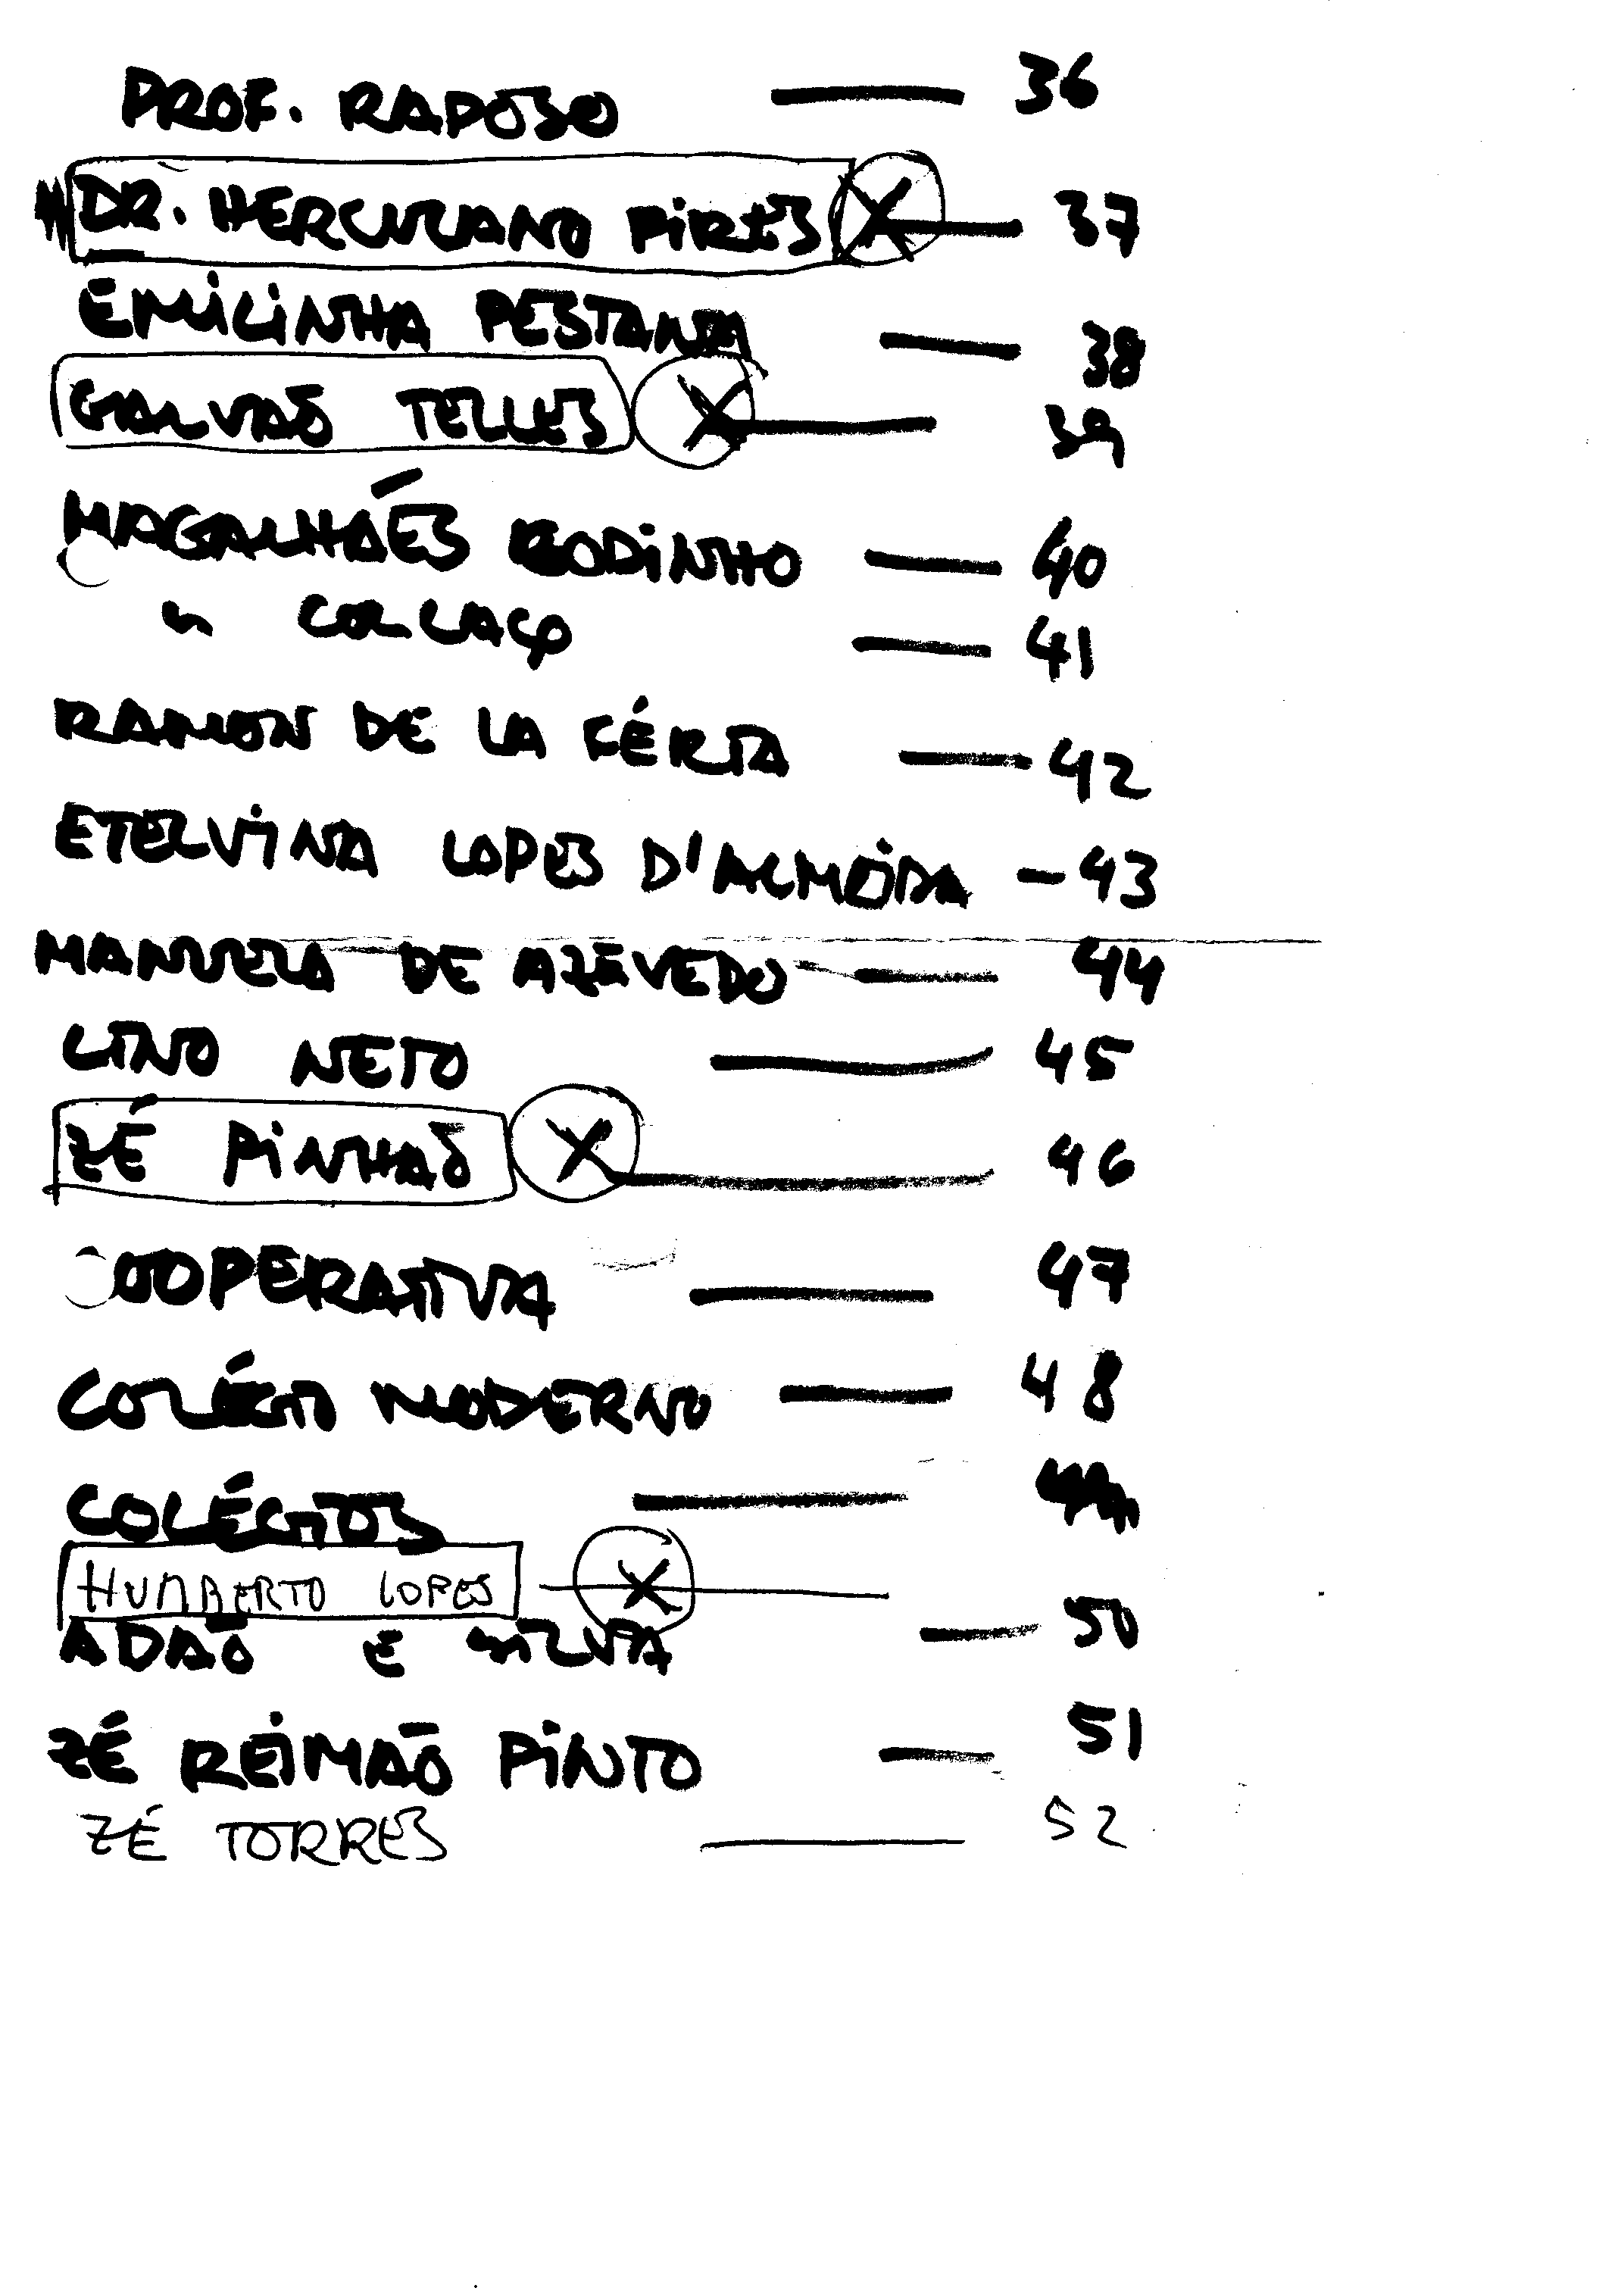 PROF. RAPOSO — 36
DR. HERCULANO PIRES X — 37
EMILINHA PESTANA — 38
GALVÃO TELLES X — 39
MAGALHÃES GODINHO — 40
" COLLAÇO — 41
RAMON DE LA FÉRIA — 42
ETELVINA LOPES D'ALMEIDA — 43
MANUELA DE AZEVEDO — 44
LINO NETO — 45
ZÉ PINHÃO X — 46
COOPERATIVA — 47
COLÉGIO MODERNO — 48
COLÉGIOS — 49
HUMBERTO LOPES — X —
ADÃO E SILVA — 50
ZÉ REIMÃO PINTO — 51
ZÉ TORRES — 52